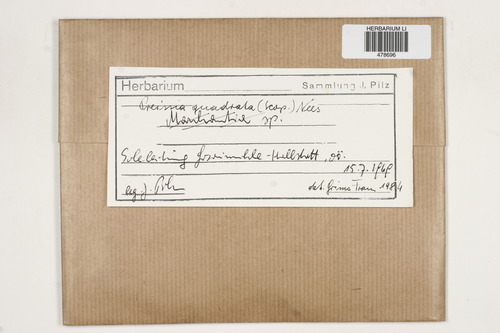 HERBARIUM LI
478696
Herbarium Sammlung J. Pilz
Preissia quadrata (Scop.) Nees
Marchantia sp.
Soleleitung -Hallstatt, oö.
15.7.1969
leg. J. Pilz det. Franz Grims 1984